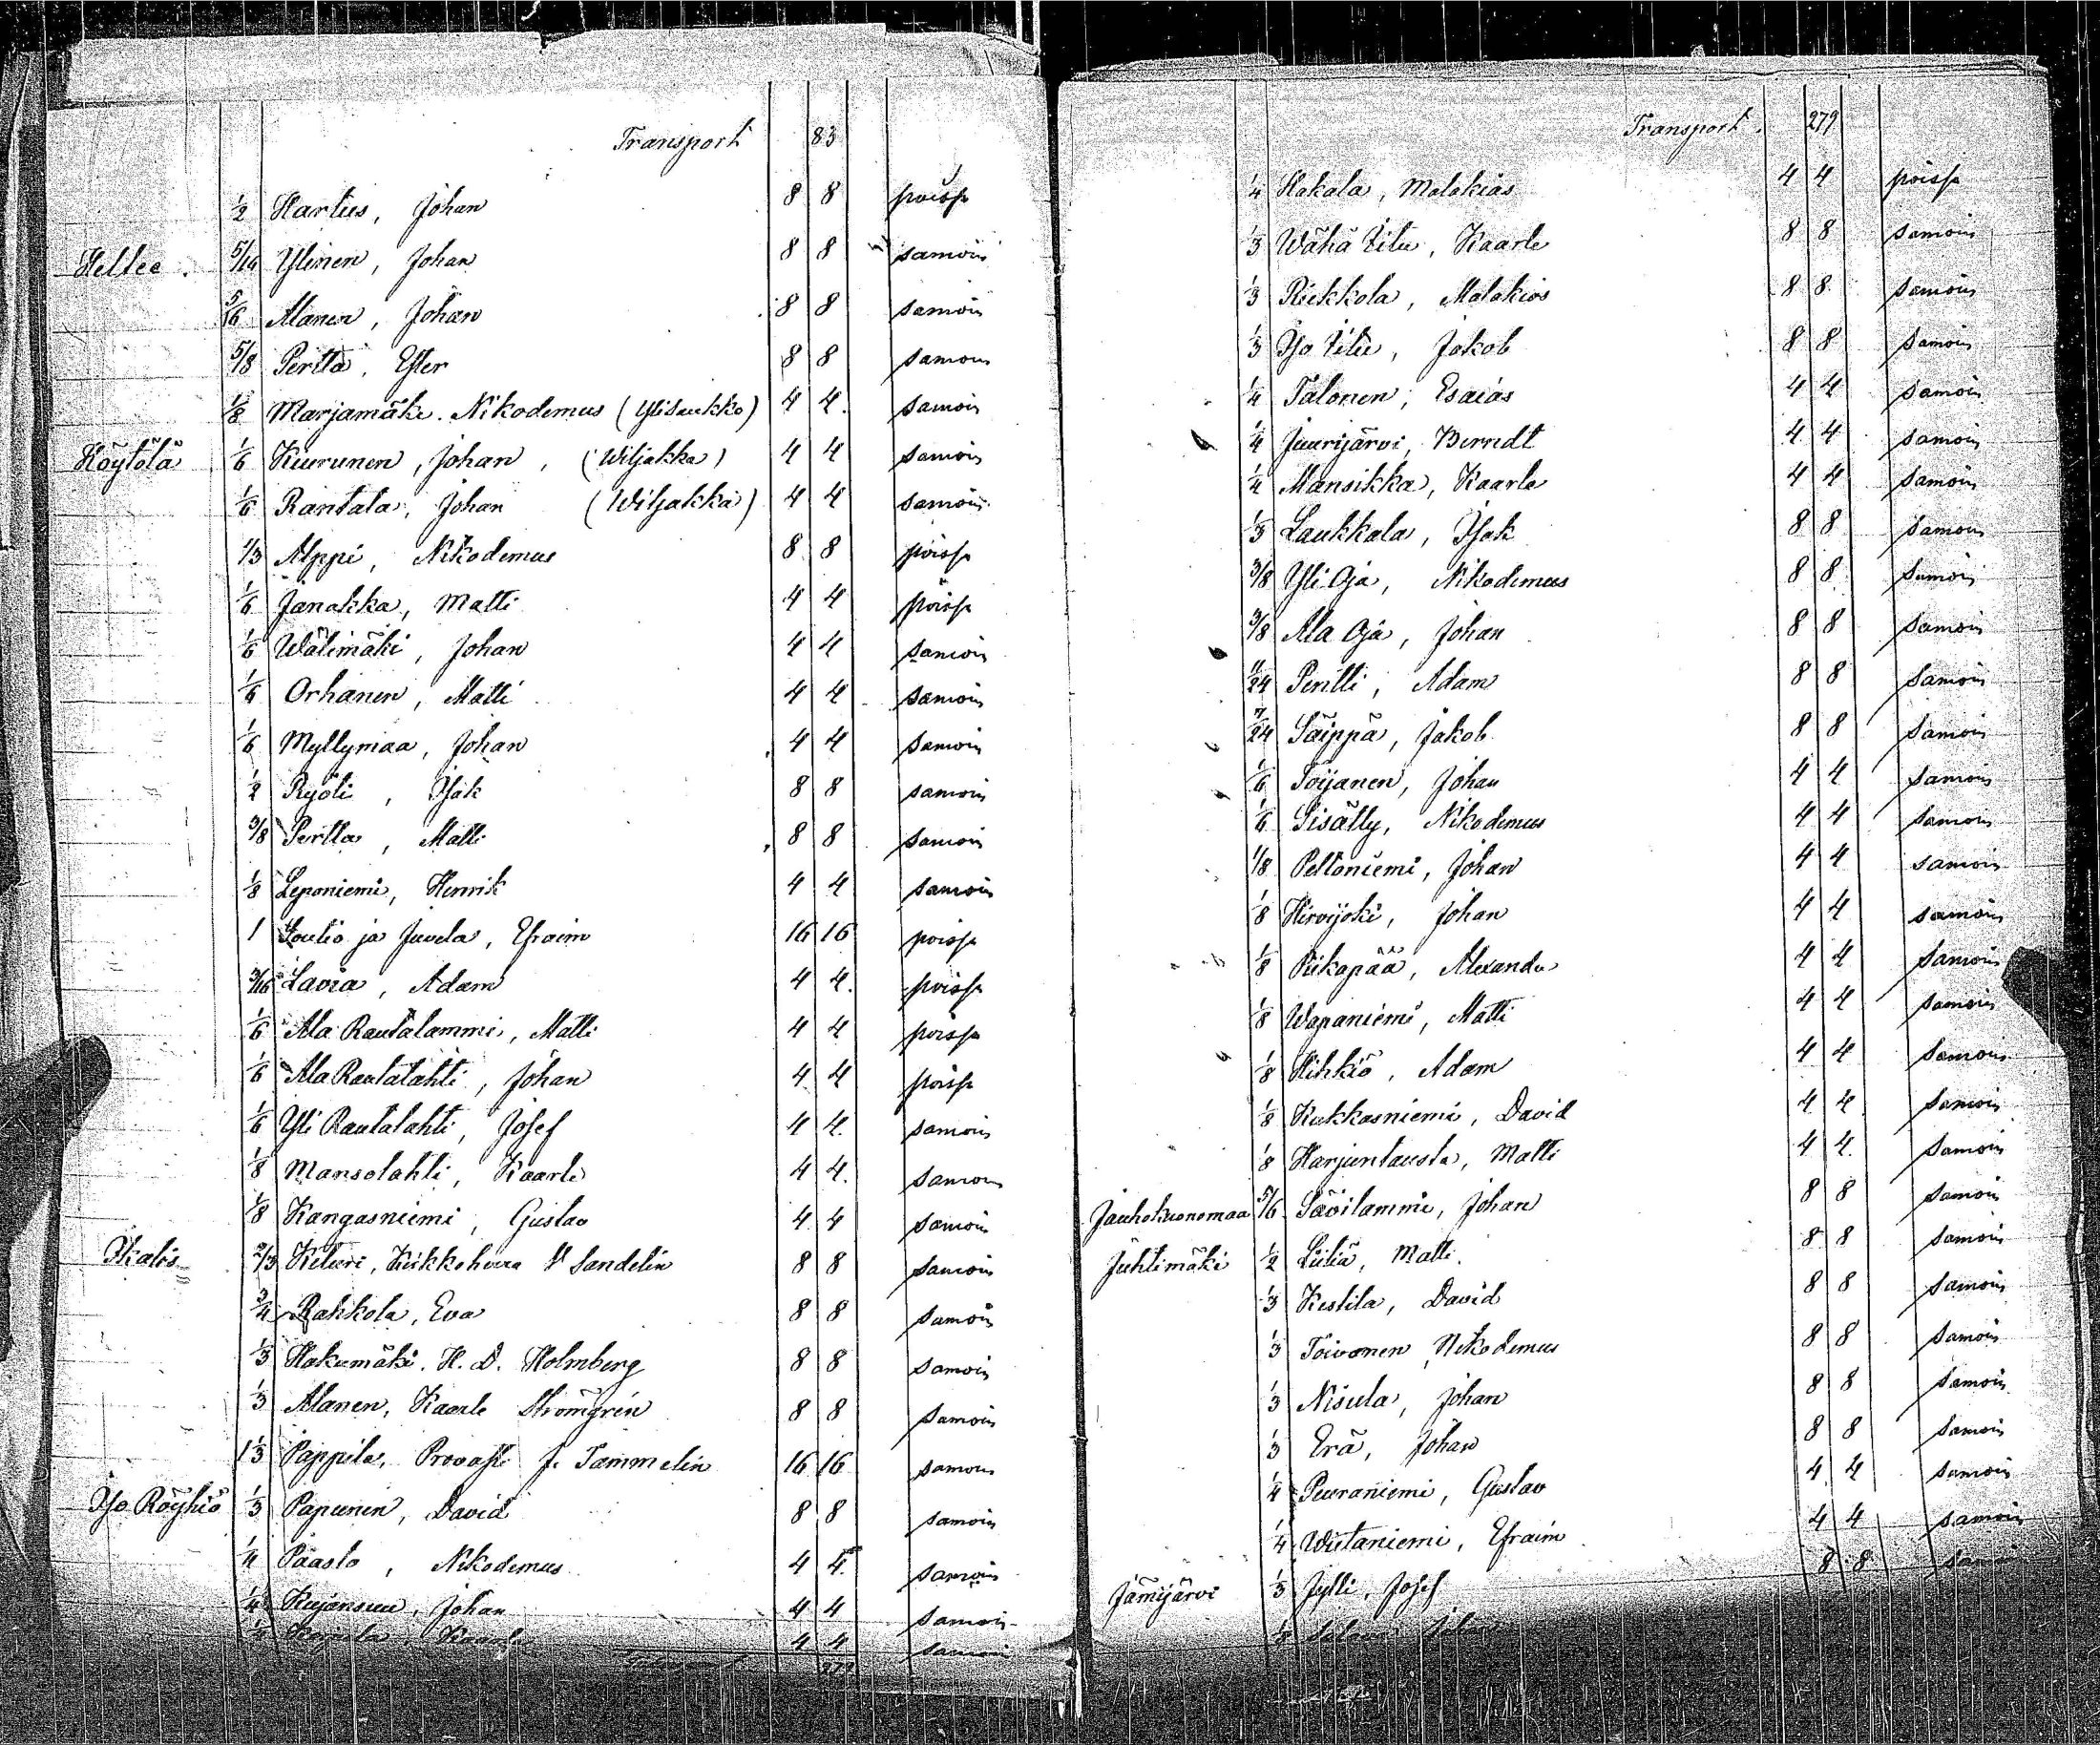 Transport 83
1/2 Hartus, Johan 8 8 poissa
Hellee. 5/16 Ylinen, Johan 8 8 samoin
5/16 Alanen, Johan 8 8 samoin
5/8 Perttä, Ester 8 8 samoin
1/8 Marjamäki. Nikodemus (Ylisaukko) 4 4. samoin
Köytölä 1/6 Kuurunen, Johan, (Wiljakka) 4 4 samoin
1/6 Rantala, Johan (Wiljakka) 4 4 samoin
1/3 Alppi, Nikodemus 8 8 poissa
1/6 Janakka, Matti 4 4 poissa
1/6 Wälimäki, Johan 4 4 samoin
1/6 Orhanen, Matti 4 4 samoin
1/6 Myllymaa, Johan 4 4 samoin
1/2 Ryöli, Isak 8 8 samoin
3/8 Perttu, Matti 8 8 samoin
1/8 Leponiemi, Henrik 4 4 samoin
1 Soulio ja Juvela, Efraim 16 16 poissa
3/16 Lavia, Adam 4 4. poissa
1/6 Ala Rautalammi, Matti 4 4 poissa
1/6 Ala Rautalahti, Johan 4 4 poissa
1/6 Yli Rautalahti, Josef 4 4. samoin
1/8 Mansolahti, Kaarle 4 4. samoin
1/8 Kangasniemi, Gustav 4 4 samoin
Ikalis 2/3 Keturi, Sandelin 8 8 samoin
3/4 Rahkola, Eva 8 8 samoin
1/3 Hakumäki. H. D. Holmberg 8 8 samoin
1/3 Alanen, Kaarle Strömgrén 8 8 samoin
1 1/3 Pappila, Provasti J. Tammelin 16 16 samoin
Iso Röyhiö 1/3 Papunen, David 8 8 samoin
1/4 Paasto, Nikodemus 4 4. samoin
1/4 Kujansuu, Johan 4 4 samoin
1/4 Kaarle 4 4 samoin
Transport. 279
1/4 Hakala, Malakias 4 4 poissa
1/3 Wähä Vitu, Kaarle 8 8 samoin
1/3 Riekkola, Malakias 8 8 samoin
1/3 Iso Vitu, Jakob 8 8 samoin
1/4 Talonen, Esaias 4 4 samoin
1/4 Juurijärvi, Berndt 4 4 samoin
1/4 Mansikka, Kaarle 4 4 samoin
1/3 Laukkala, Isak 8 8 samoin
3/8 Yli Oja, Nikodemus 8 8 samoin
3/8 Ala Oja, Johan 8 8 samoin
11/24 Pentti, Adam 8 8 samoin
7/24 Säippä, Jakob 8 8 samoin
1/6 Toijanen, Johan 4 4 samoin
1/6 Sisätty, Nikodemus 4 4 samoin
1/8 Peltoniemi, Johan 4 4 samoin
1/8 Hirvijoki, Johan 4 4 samoin
1/8 Piikapää, Alexander 4 4 samoin
1/8 Wapaniemi, Matti 4 4 samoin
1/8 Hihkiö, Adam 4 4 samoin
1/8 Kukkasniemi, David 4 4 samoin
1/8 Harjuntausta, Matti 4 4. samoin
Jauhokuonomaa 5/6 Sävilammi, Johan 8 8 samoin
Juhtimäki 1/2 Liilia, Matti. 8 8 samoin
1/3 Kestila, David 8 8 samoin
1/3 Toivonen, Nikodemus 8 8 samoin
1/3 Nisula, Johan 8 8 samoin
1/3 Erä, Johan 8 8 samoin
1/4 Peuraniemi, Gustav 4 4 samoin
1/4 Wiitaniemi, Efraim 4 4 samoin
Jämijärvi 1/3 Jylli, Josef 8 8